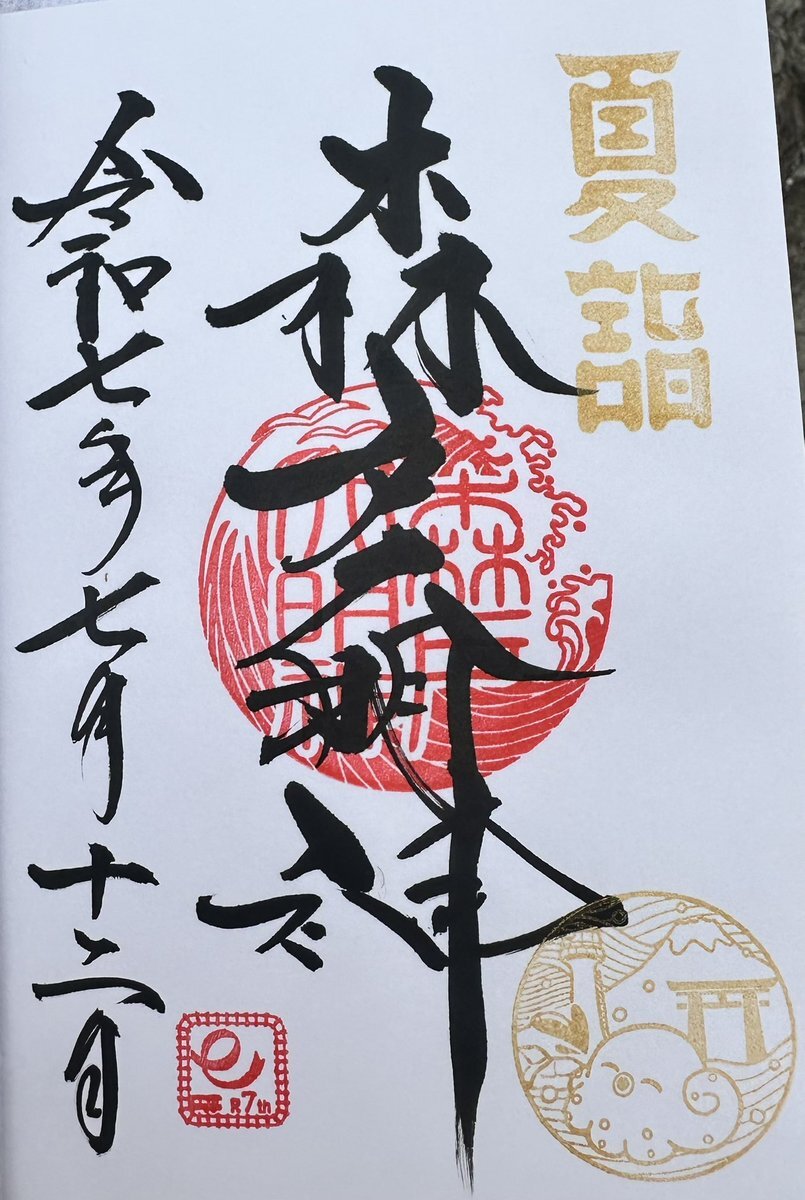 夏詣
森戸大明神
森戸
大明神
令和七年七月十二日
R7th